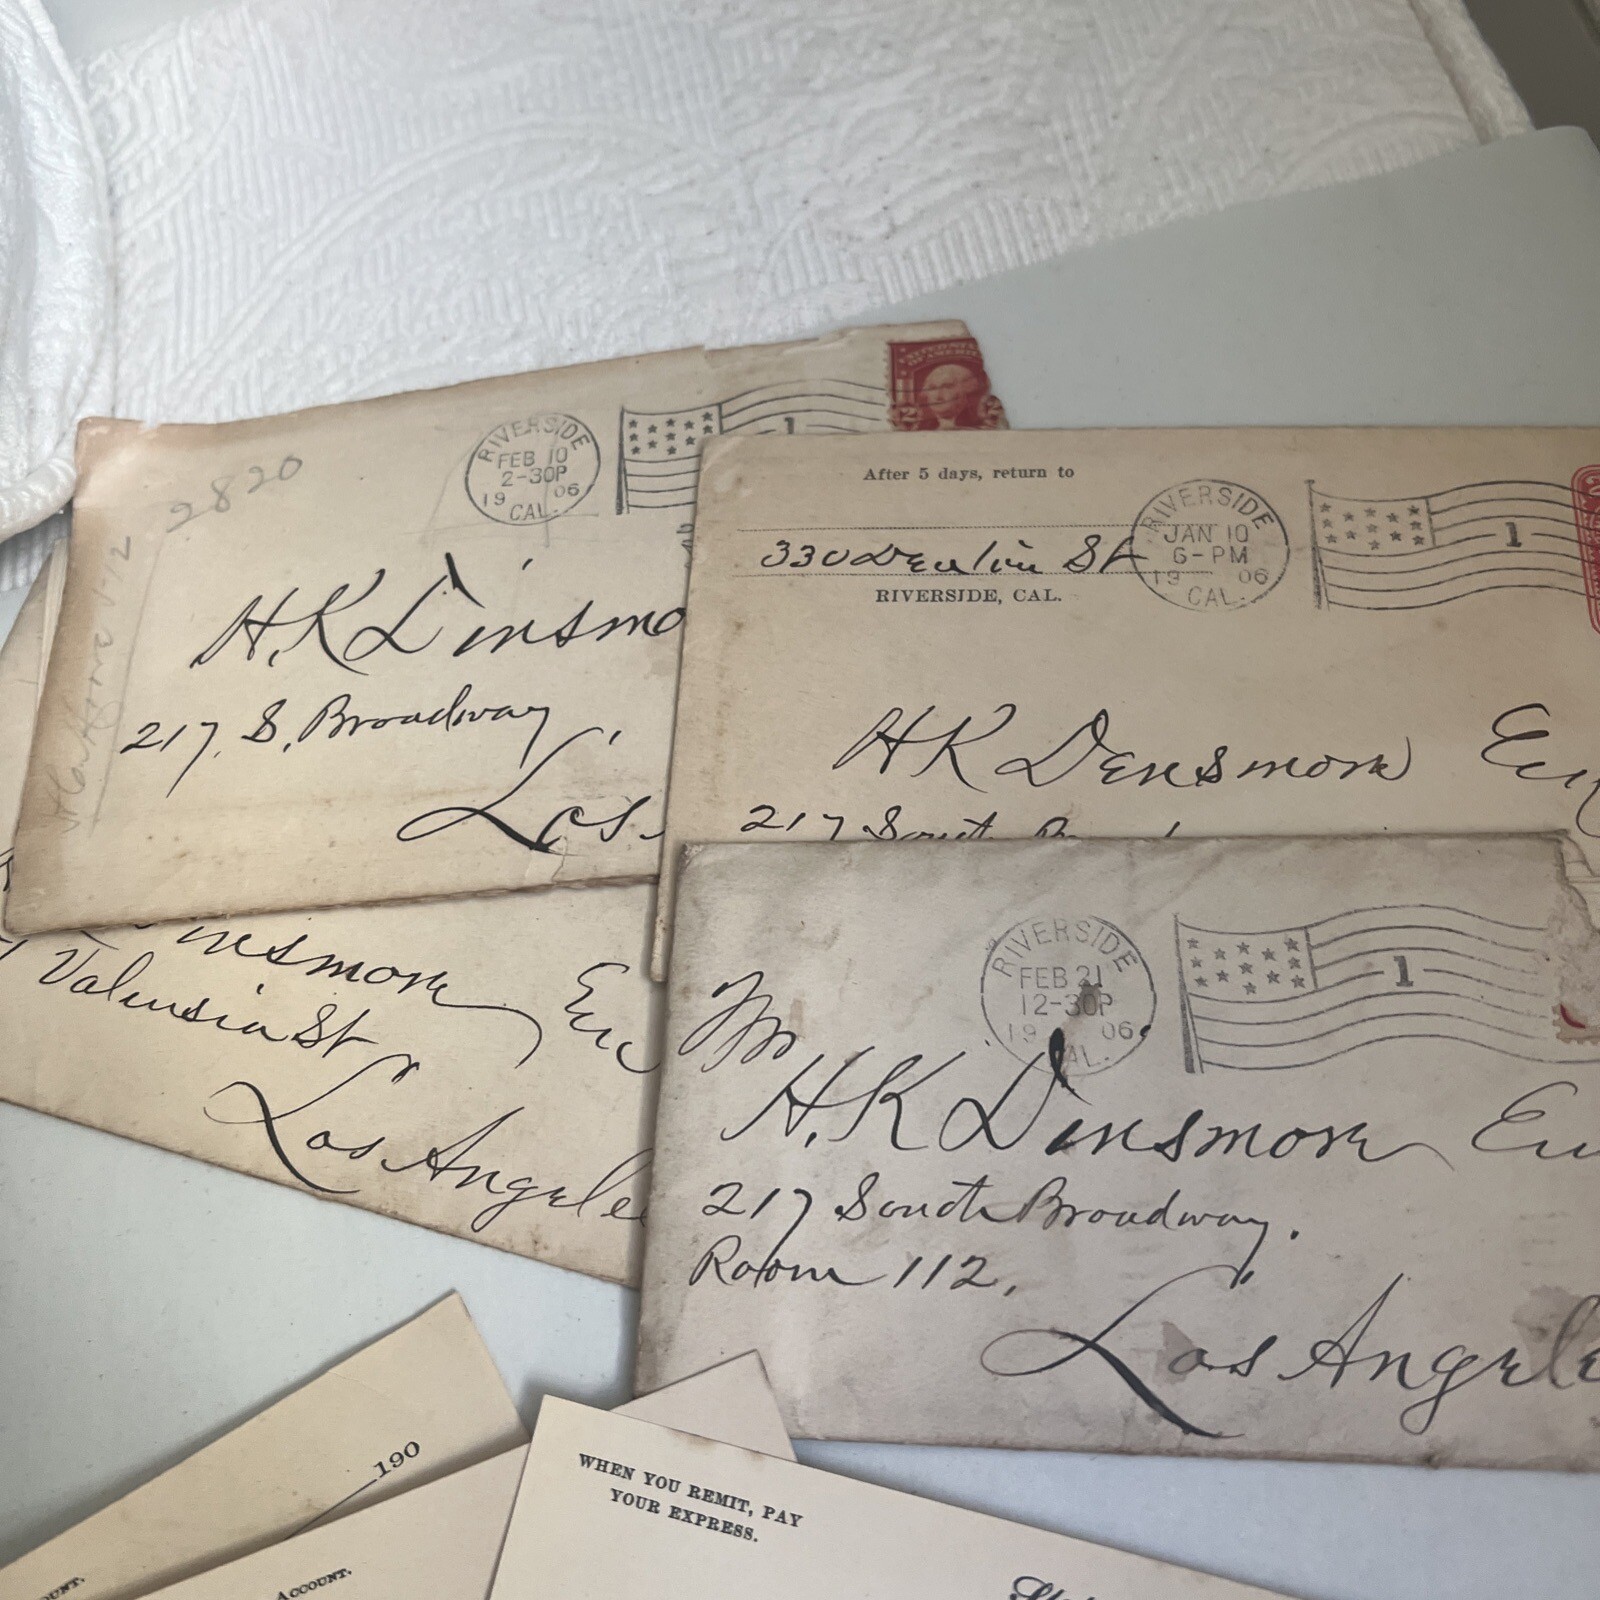 UNITED STATES
OF AMERICA
2
RIVERSIDE
FEB 10
2-30P
19 06
CAL.
1
2820
H.K Dinsmo
217. S. Broadway,
Los
After 5 days, return to
330 St
RIVERSIDE, CAL.
RIVERSIDE
JAN 10
6-PM
19 06
CAL.
1
2
HK Densmore
217 South
insmore
Valensia St
Los Angele
RIVERSIDE
FEB 21
12-30P
19 06
AL.
1
Mr
H.K Dinsmore
217 South Broadway.
Room 112,
Los Angele
190
OUNT.
ACCOUNT.
WHEN YOU REMIT, PAY
YOUR EXPRESS.